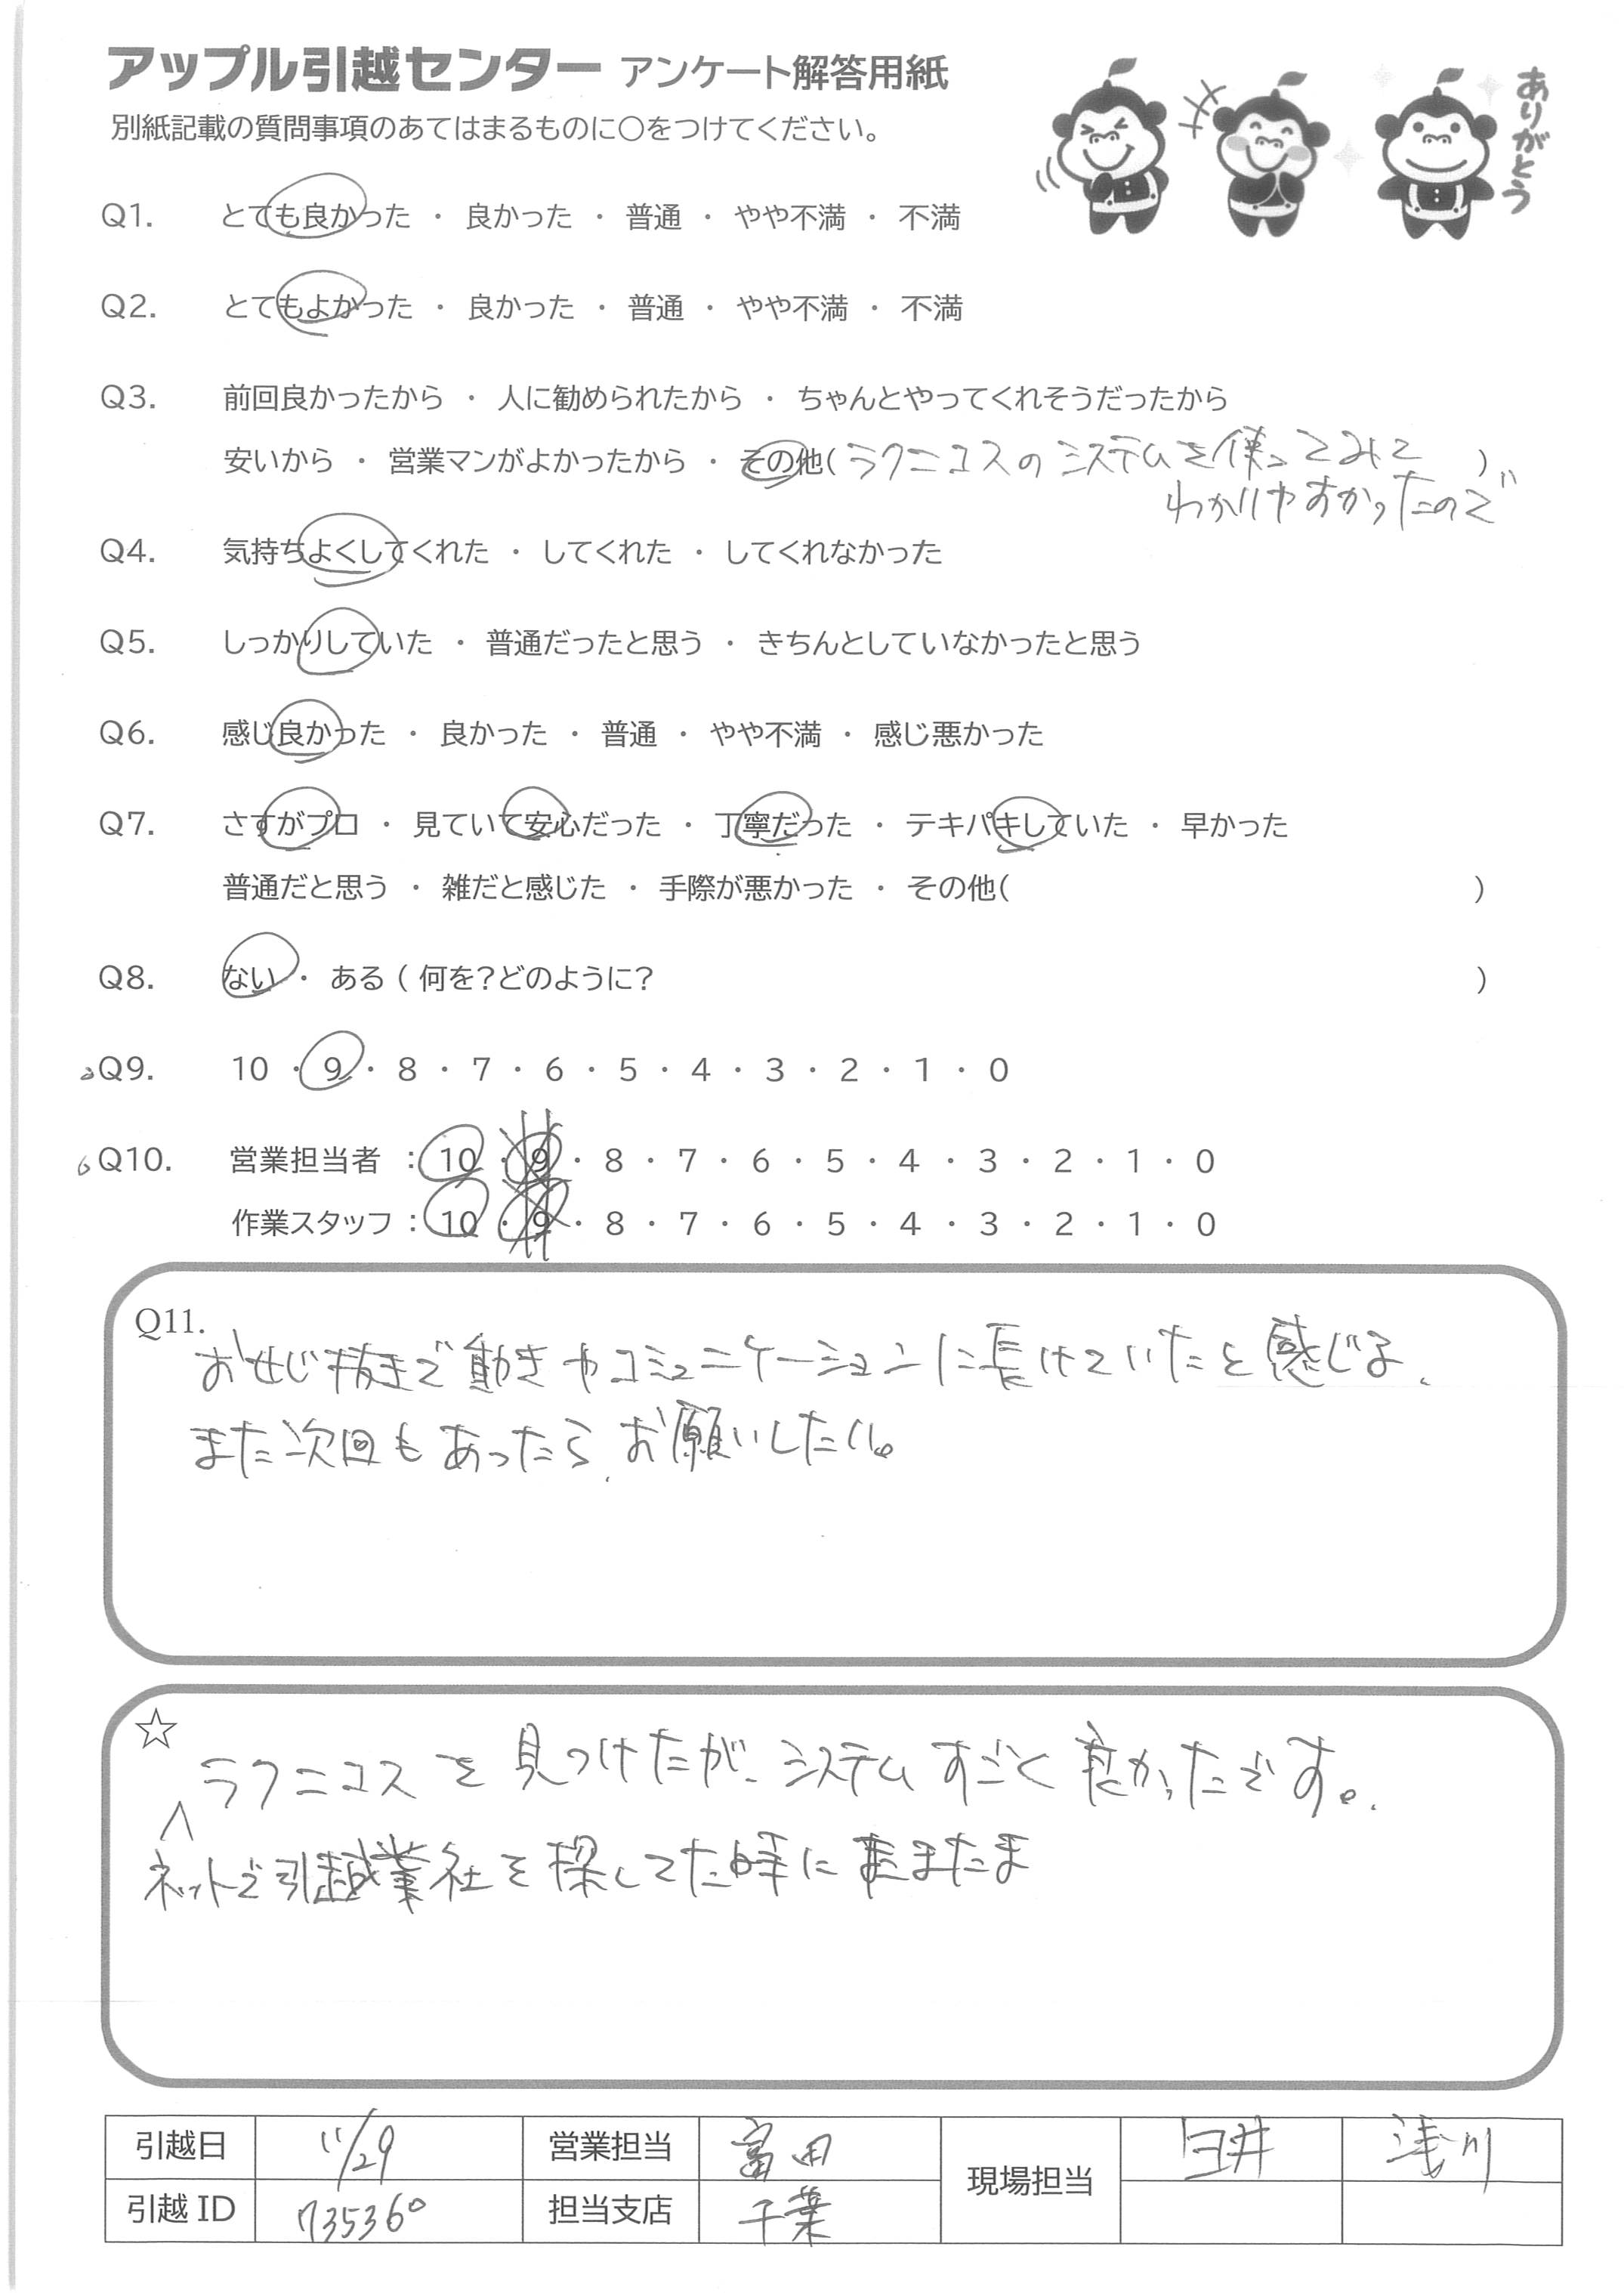 アップル引越センター アンケート解答用紙
別紙記載の質問事項のあてはまるものに○をつけてください。
ありがとう
Q1. とても良かった ・ 良かった ・ 普通 ・ やや不満 ・ 不満
Q2. とてもよかった ・ 良かった ・ 普通 ・ やや不満 ・ 不満
Q3. 前回良かったから ・ 人に勧められたから ・ ちゃんとやってくれそうだったから
安いから ・ 営業マンがよかったから ・ その他(ラクニコスのシステムを使ってみて )
わかりやすかったので
Q4. 気持ちよくしてくれた ・ してくれた ・ してくれなかった
Q5. しっかりしていた ・ 普通だったと思う ・ きちんとしていなかったと思う
Q6. 感じ良かった ・ 良かった ・ 普通 ・ やや不満 ・ 感じ悪かった
Q7. さすがプロ ・ 見ていて安心だった ・ 丁寧だった ・ テキパキしていた ・ 早かった
普通だと思う ・ 雑だと感じた ・ 手際が悪かった ・ その他( )
Q8. ない ・ ある ( 何を?どのように? )
Q9. 10 ・ 9 ・ 8 ・ 7 ・ 6 ・ 5 ・ 4 ・ 3 ・ 2 ・ 1 ・ 0
Q10. 営業担当者 : 10 ・ 9 ・ 8 ・ 7 ・ 6 ・ 5 ・ 4 ・ 3 ・ 2 ・ 1 ・ 0
作業スタッフ : 10 ・ 9 ・ 8 ・ 7 ・ 6 ・ 5 ・ 4 ・ 3 ・ 2 ・ 1 ・ 0
Q11.
おせじ抜きで動きやコミュニケーションに長けていたと感じる、
また次回もあったら、お願いしたい。
☆
ラクニコスを見つけたが、システムすごく良かったです。
ネットで引越業社を探してた時にたまたま
引越日 11/29 営業担当 富田 現場担当 臼井 浅川
引越ID 735360 担当支店 千葉